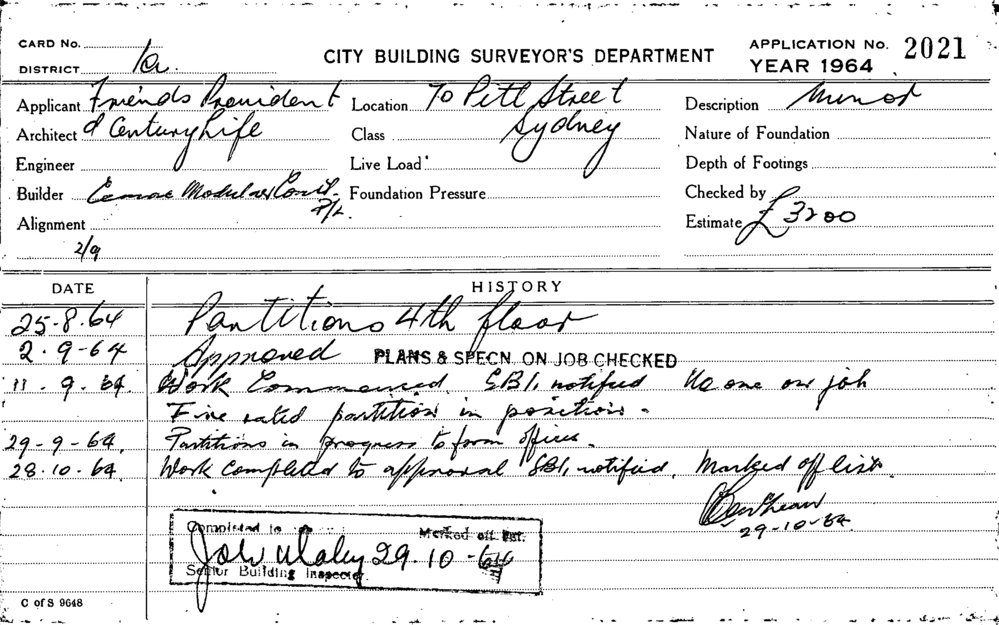 CARD No.
DISTRICT 1a.
CITY BUILDING SURVEYOR'S DEPARTMENT
APPLICATION No. 2021
YEAR 1964
Applicant Friends Provident Location 70 Pitt Street Description Minor
Architect & Century Life Class Sydney Nature of Foundation
Engineer Live Load Depth of Footings
Builder Modular Foundation Pressure Checked by
P/L.
Alignment Estimate £3200
2/9
DATE HISTORY
25-8-64 Partitions 4th floor
2-9-64 Approved PLANS & SPECN. ON JOB CHECKED
11-9-64. Work Commenced. SBI, notified No one on job
Fire rated partition in position.
29-9-64. Partitions in progress to form offices.
28.10.64. Work completed to approval SBI, notified. Marked off list.
29-10-64
Completed to Marked off list.
29-10-64
Senior Building Inspector.
C of S 9648